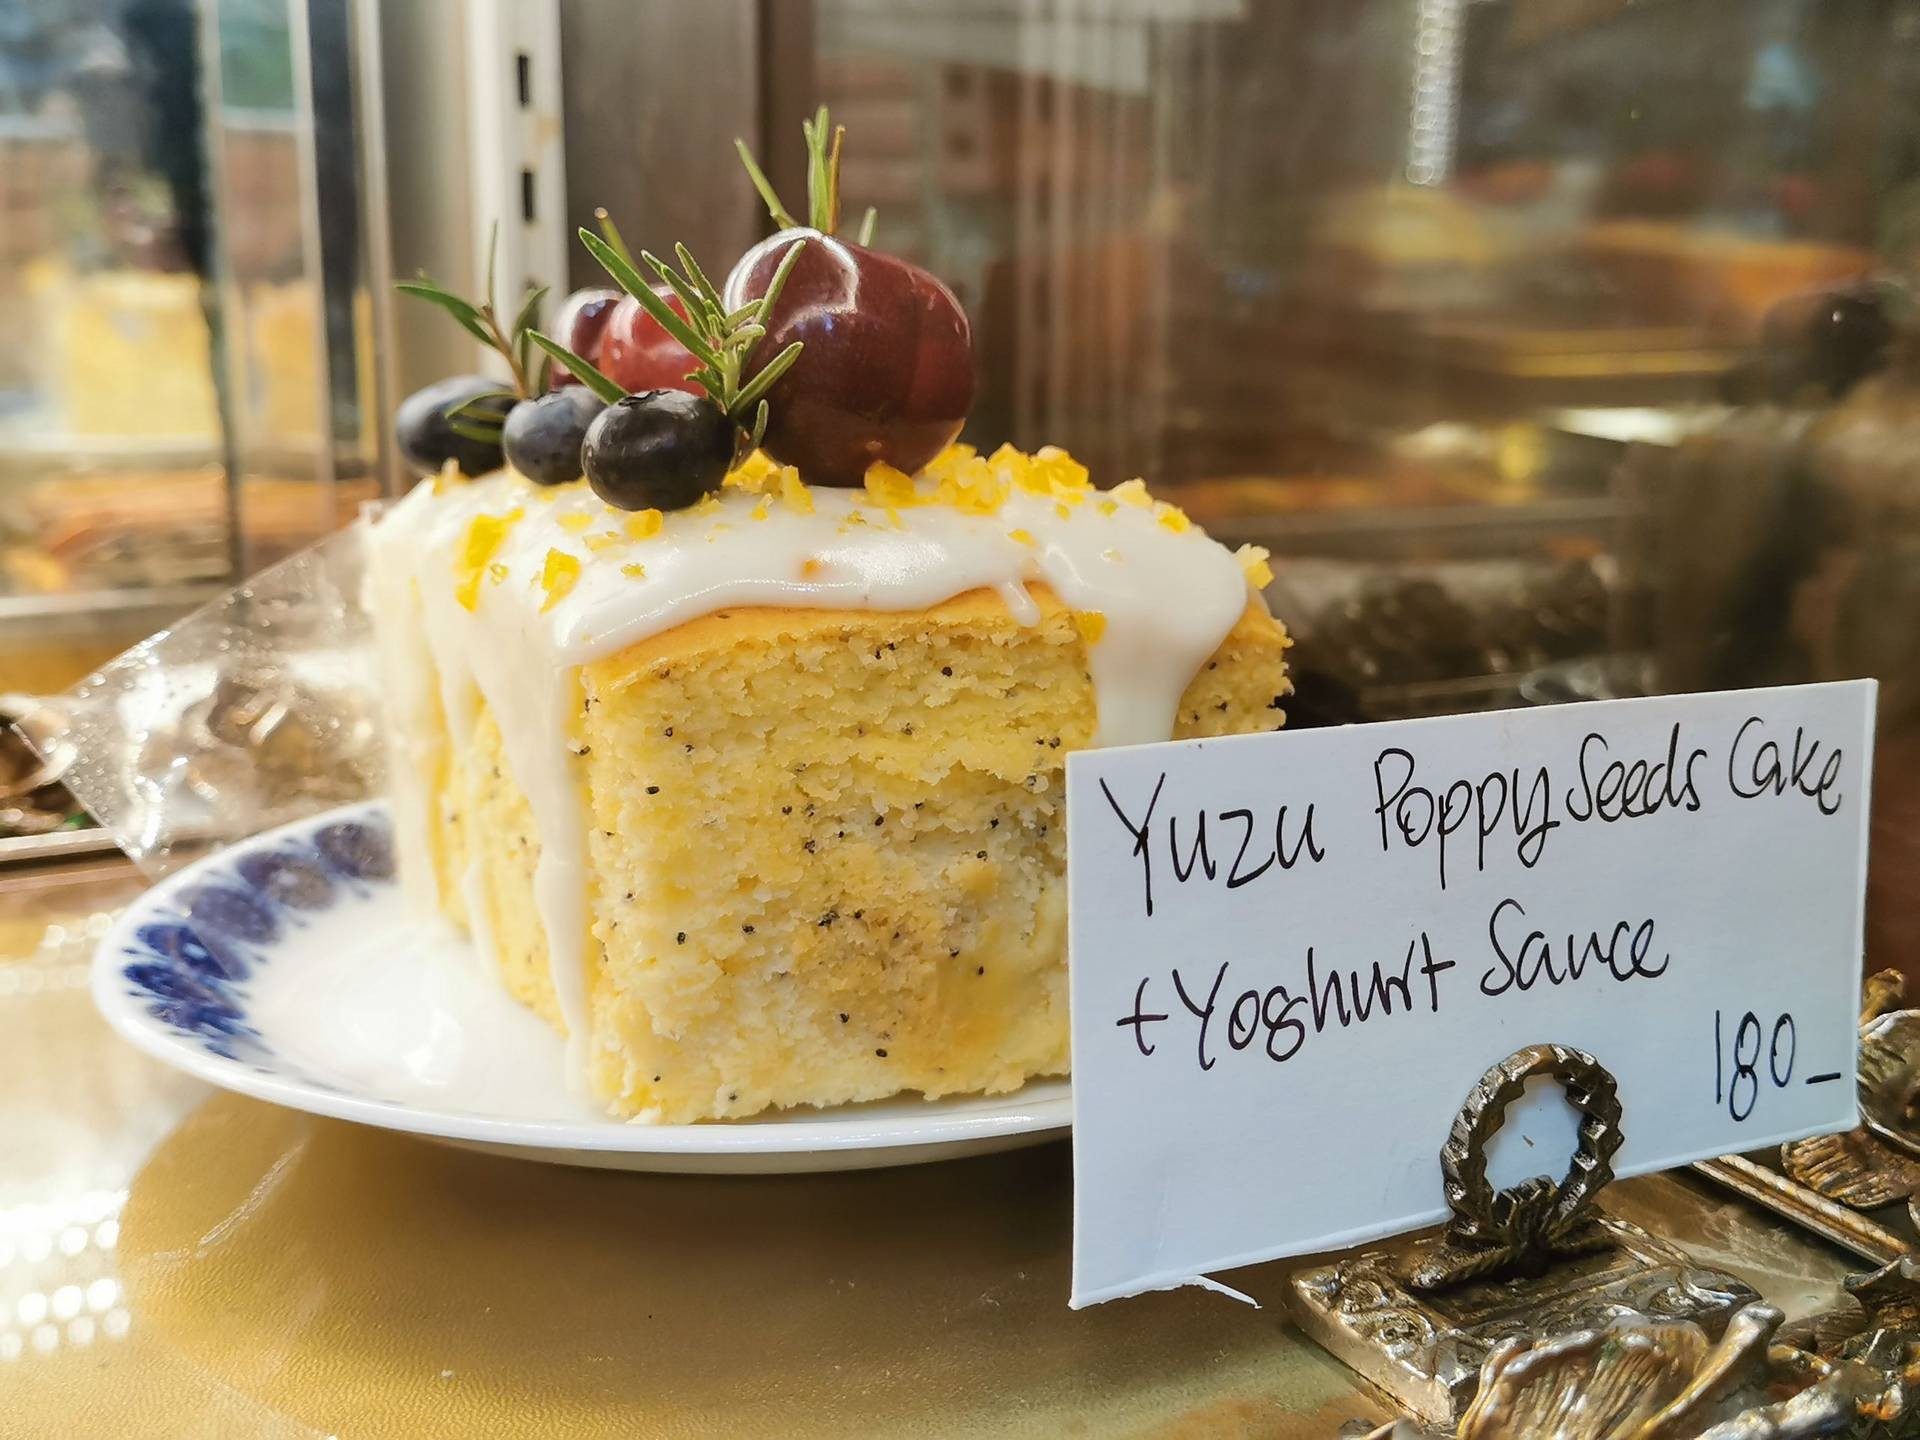 Yuzu Poppy Seeds Cake
+ Yoghurt Sauce
180_